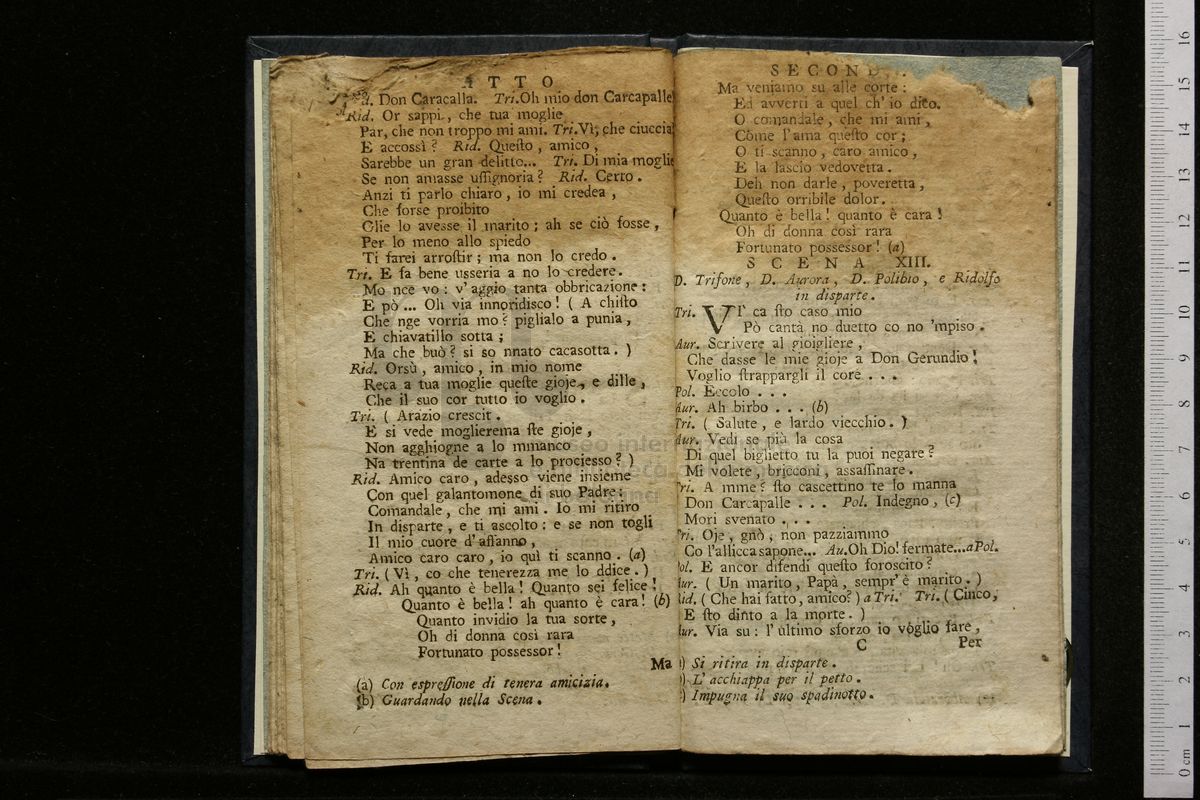 ATTO
Don Caracalla. Tri.Oh mio don Carcapalle
Rid. Or sappi, che tua moglie
Par, che non troppo mi ami. Tri.Vì, che ciuccia
E accossì? Rid. Queſto, amico,
Sarebbe un gran delitto... Tri. Di mia moglie
Se non amasse uſſignoria? Rid. Certo.
Anzi ti parlo chiaro, io mi credea,
Che forse proibito
Glie lo avesse il marito; ah se ciò fosse,
Per lo meno allo spiedo
Ti farei arroſtir; ma non lo credo.
Tri. E fa bene usseria a no lo credere.
Mo nce vo: v'aggio tanta obbricazione:
E pò... Oh via innorridisco! (A chiſto
Che nge vorria mo? piglialo a punia,
E chiavatillo sotta;
Ma che buò? si so nnato cacasotta.)
Rid. Orsù, amico, in mio nome
Reca a tua moglie queſte gioje, e dille,
Che il suo cor tutto io voglio.
Tri. (Arazio crescit.
E si vede moglierema ſte gioje,
Non agghiogne a lo mmanco
Na trentina de carte a lo prociesso?)
Rid. Amico caro, adesso viene insieme
Con quel galantomone di suo Padre:
Comandale, che mi ami. Io mi ritiro
In disparte, e ti ascolto: e se non togli
Il mio cuore d'affanno,
Amico caro caro, io quì ti scanno. (a)
Tri. (Vì, co che tenerezza me lo ddice.)
Rid. Ah quanto è bella! Quanto sei felice!
Quanto è bella! ah quanto è cara! (b)
Quanto invidio la tua sorte,
Oh di donna così rara
Fortunato possessor!
Ma
(a) Con espreſſione di tenera amicizia.
(b) Guardando nella Scena.
SECOND
Ma veniamo su alle corte:
Ed avverti a quel ch'io dico.
O comandale, che mi ami,
Come l'ama queſto cor;
O ti scanno, caro amico,
E la lascio vedovetta.
Deh non darle, poveretta,
Queſto orribile dolor.
Quanto è bella! quanto è cara!
Oh di donna così rara
Fortunato possessor! (a)
SCENA XIII.
D. Trifone, D. Aurora, D. Polibio, e Ridolfo
in disparte.
Tri. VI' ca ſto caso mio
Pò cantà no duetto co no 'mpiso.
Aur. Scrivere al gioigliere,
Che dasse le mie gioje a Don Gerundio!
Voglio ſtrappargli il core...
Pol. Eccolo...
Aur. Ah birbo... (b)
Tri. (Salute, e lardo viecchio.)
Aur. Vedi se più la cosa
Di quel biglietto tu la puoi negare?
Mi volete, bricconi, aſſaſſinare.
Tri. A mme? ſto cascettino te lo manna
Don Carcapalle... Pol. Indegno, (c)
Mori svenato...
Tri. Oje, gnò, non pazziammo
Co l'allicca sapone... Au.Oh Dio! fermate...a Pol.
Pol. E ancor difendi queſto foroscito?
Aur. (Un marito, Papà, sempr'è marito.)
Rid. (Che hai fatto, amico?) a Tri. Tri. (Cinco,
E ſto dinto a la morte.)
Aur. Via su: l'ultimo sforzo io voglio fare,
C Per
) Si ritira in disparte.
) L'acchiappa per il petto.
) Impugna il suo spadinotto.